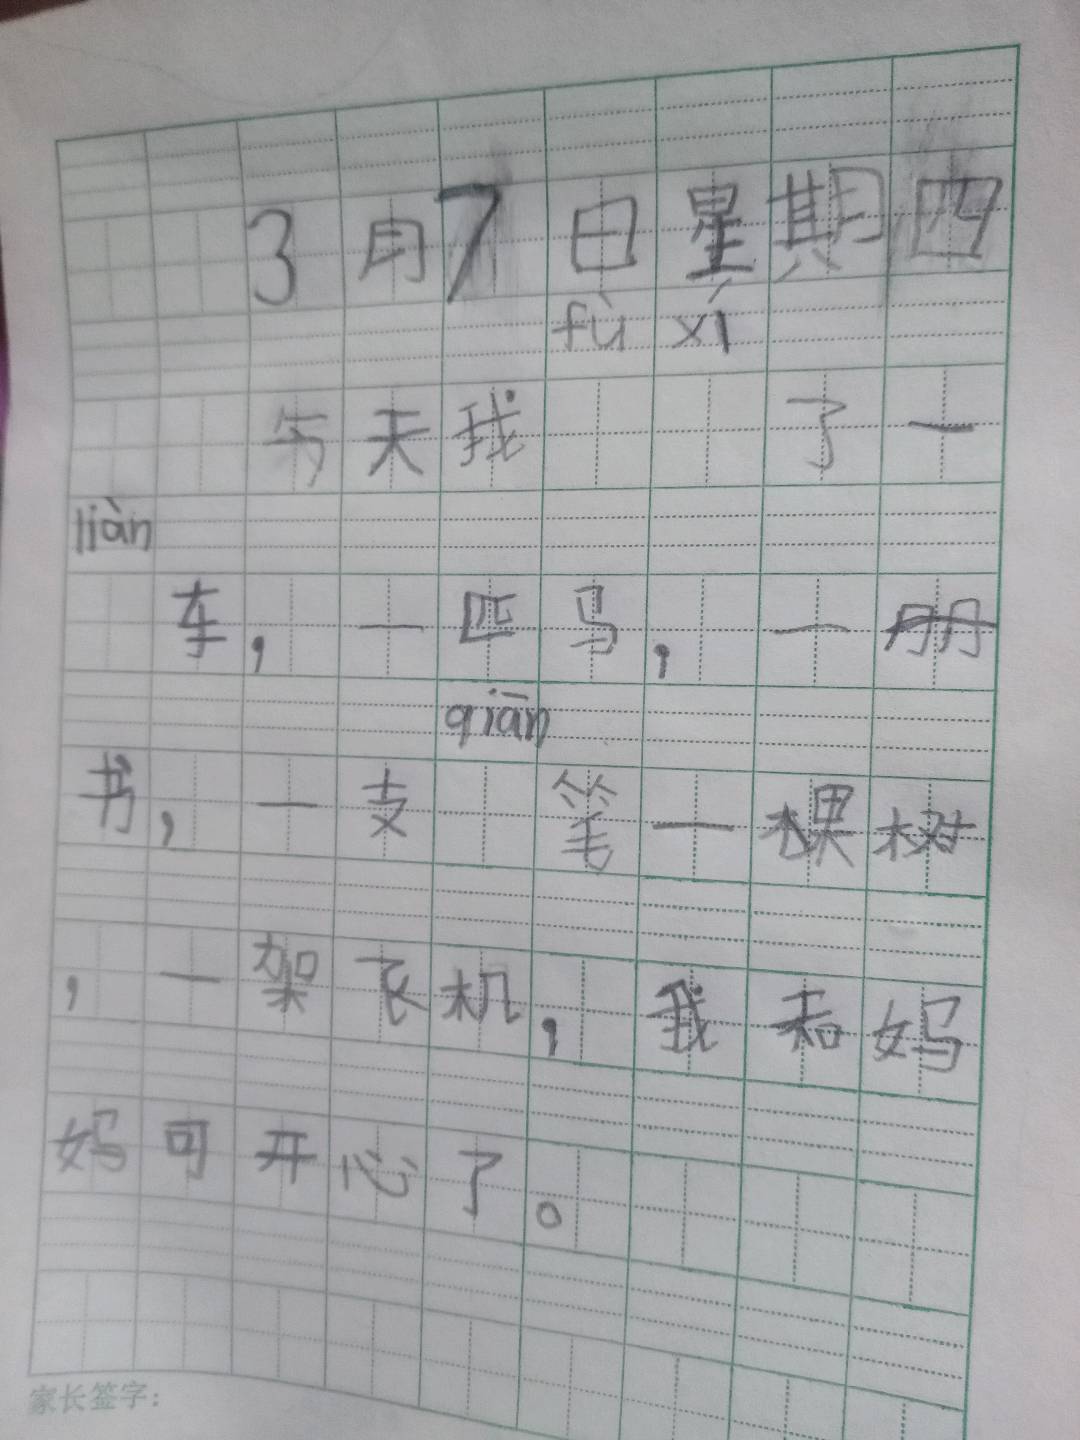 3月7日星期四
fù xí
今天我 了一
liàn
车，一匹马，一册
qiān
书，一支 笔一棵树
，一架飞机，我和妈
妈可开心了。
家长签字：